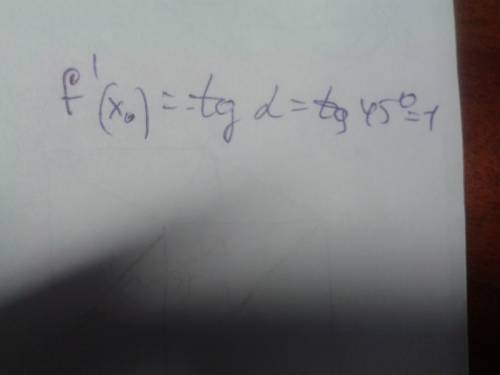 f'(x₀) = tg α = tg 45° = 1